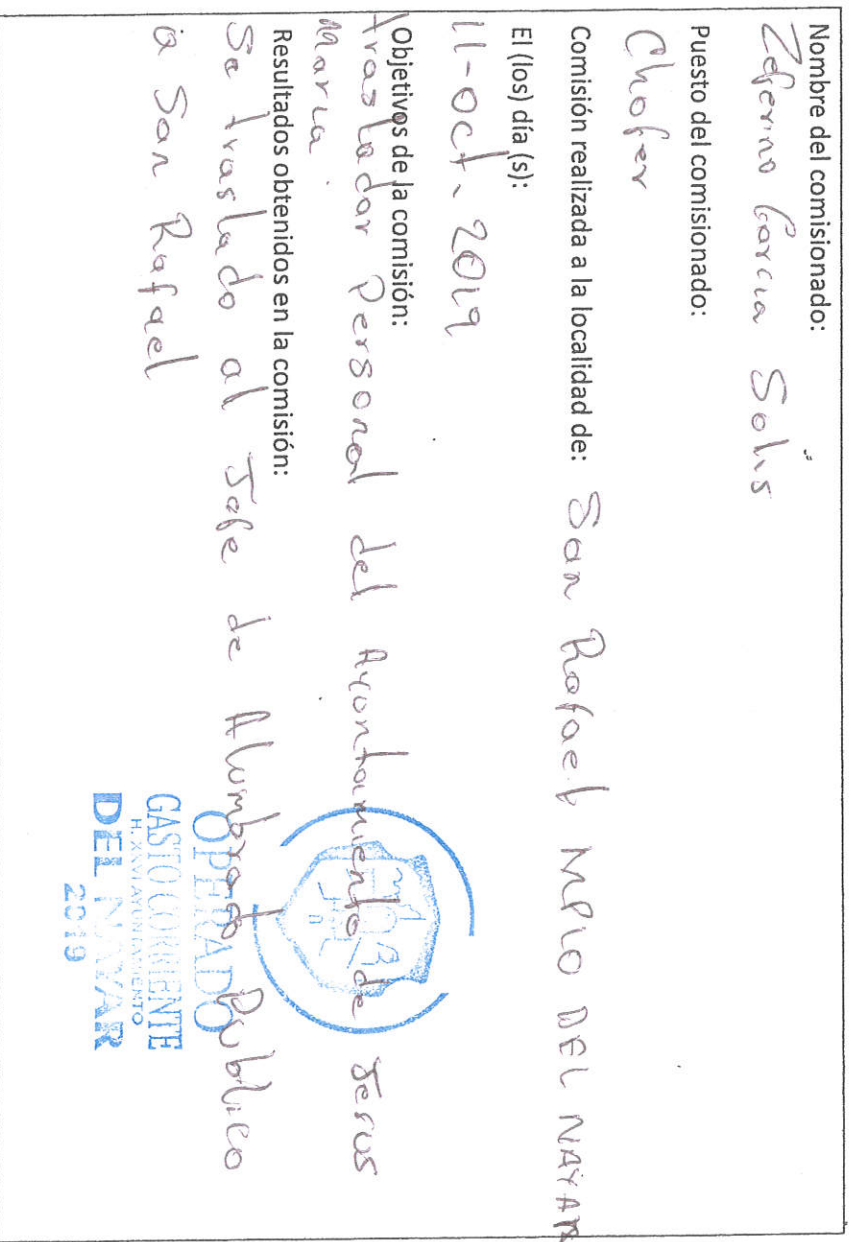 Nombre del comisionado:
Zeferino Garcia Solis
Puesto del comisionado:
Chofer
Comisión realizada a la localidad de: San Rafael MPIO DEL NAYAR
El (los) día (s):
11-Oct. 2019
Objetivos de la comisión:
trasladar Personal del Ayuntamiento de Jesus
Maria.
Resultados obtenidos en la comisión:
Se traslado al Jefe de Alumbrado Publico
a San Rafael
OPERADO
GASTO CORRIENTE
H. XXVI AYUNTAMIENTO
DEL NAYAR
2019